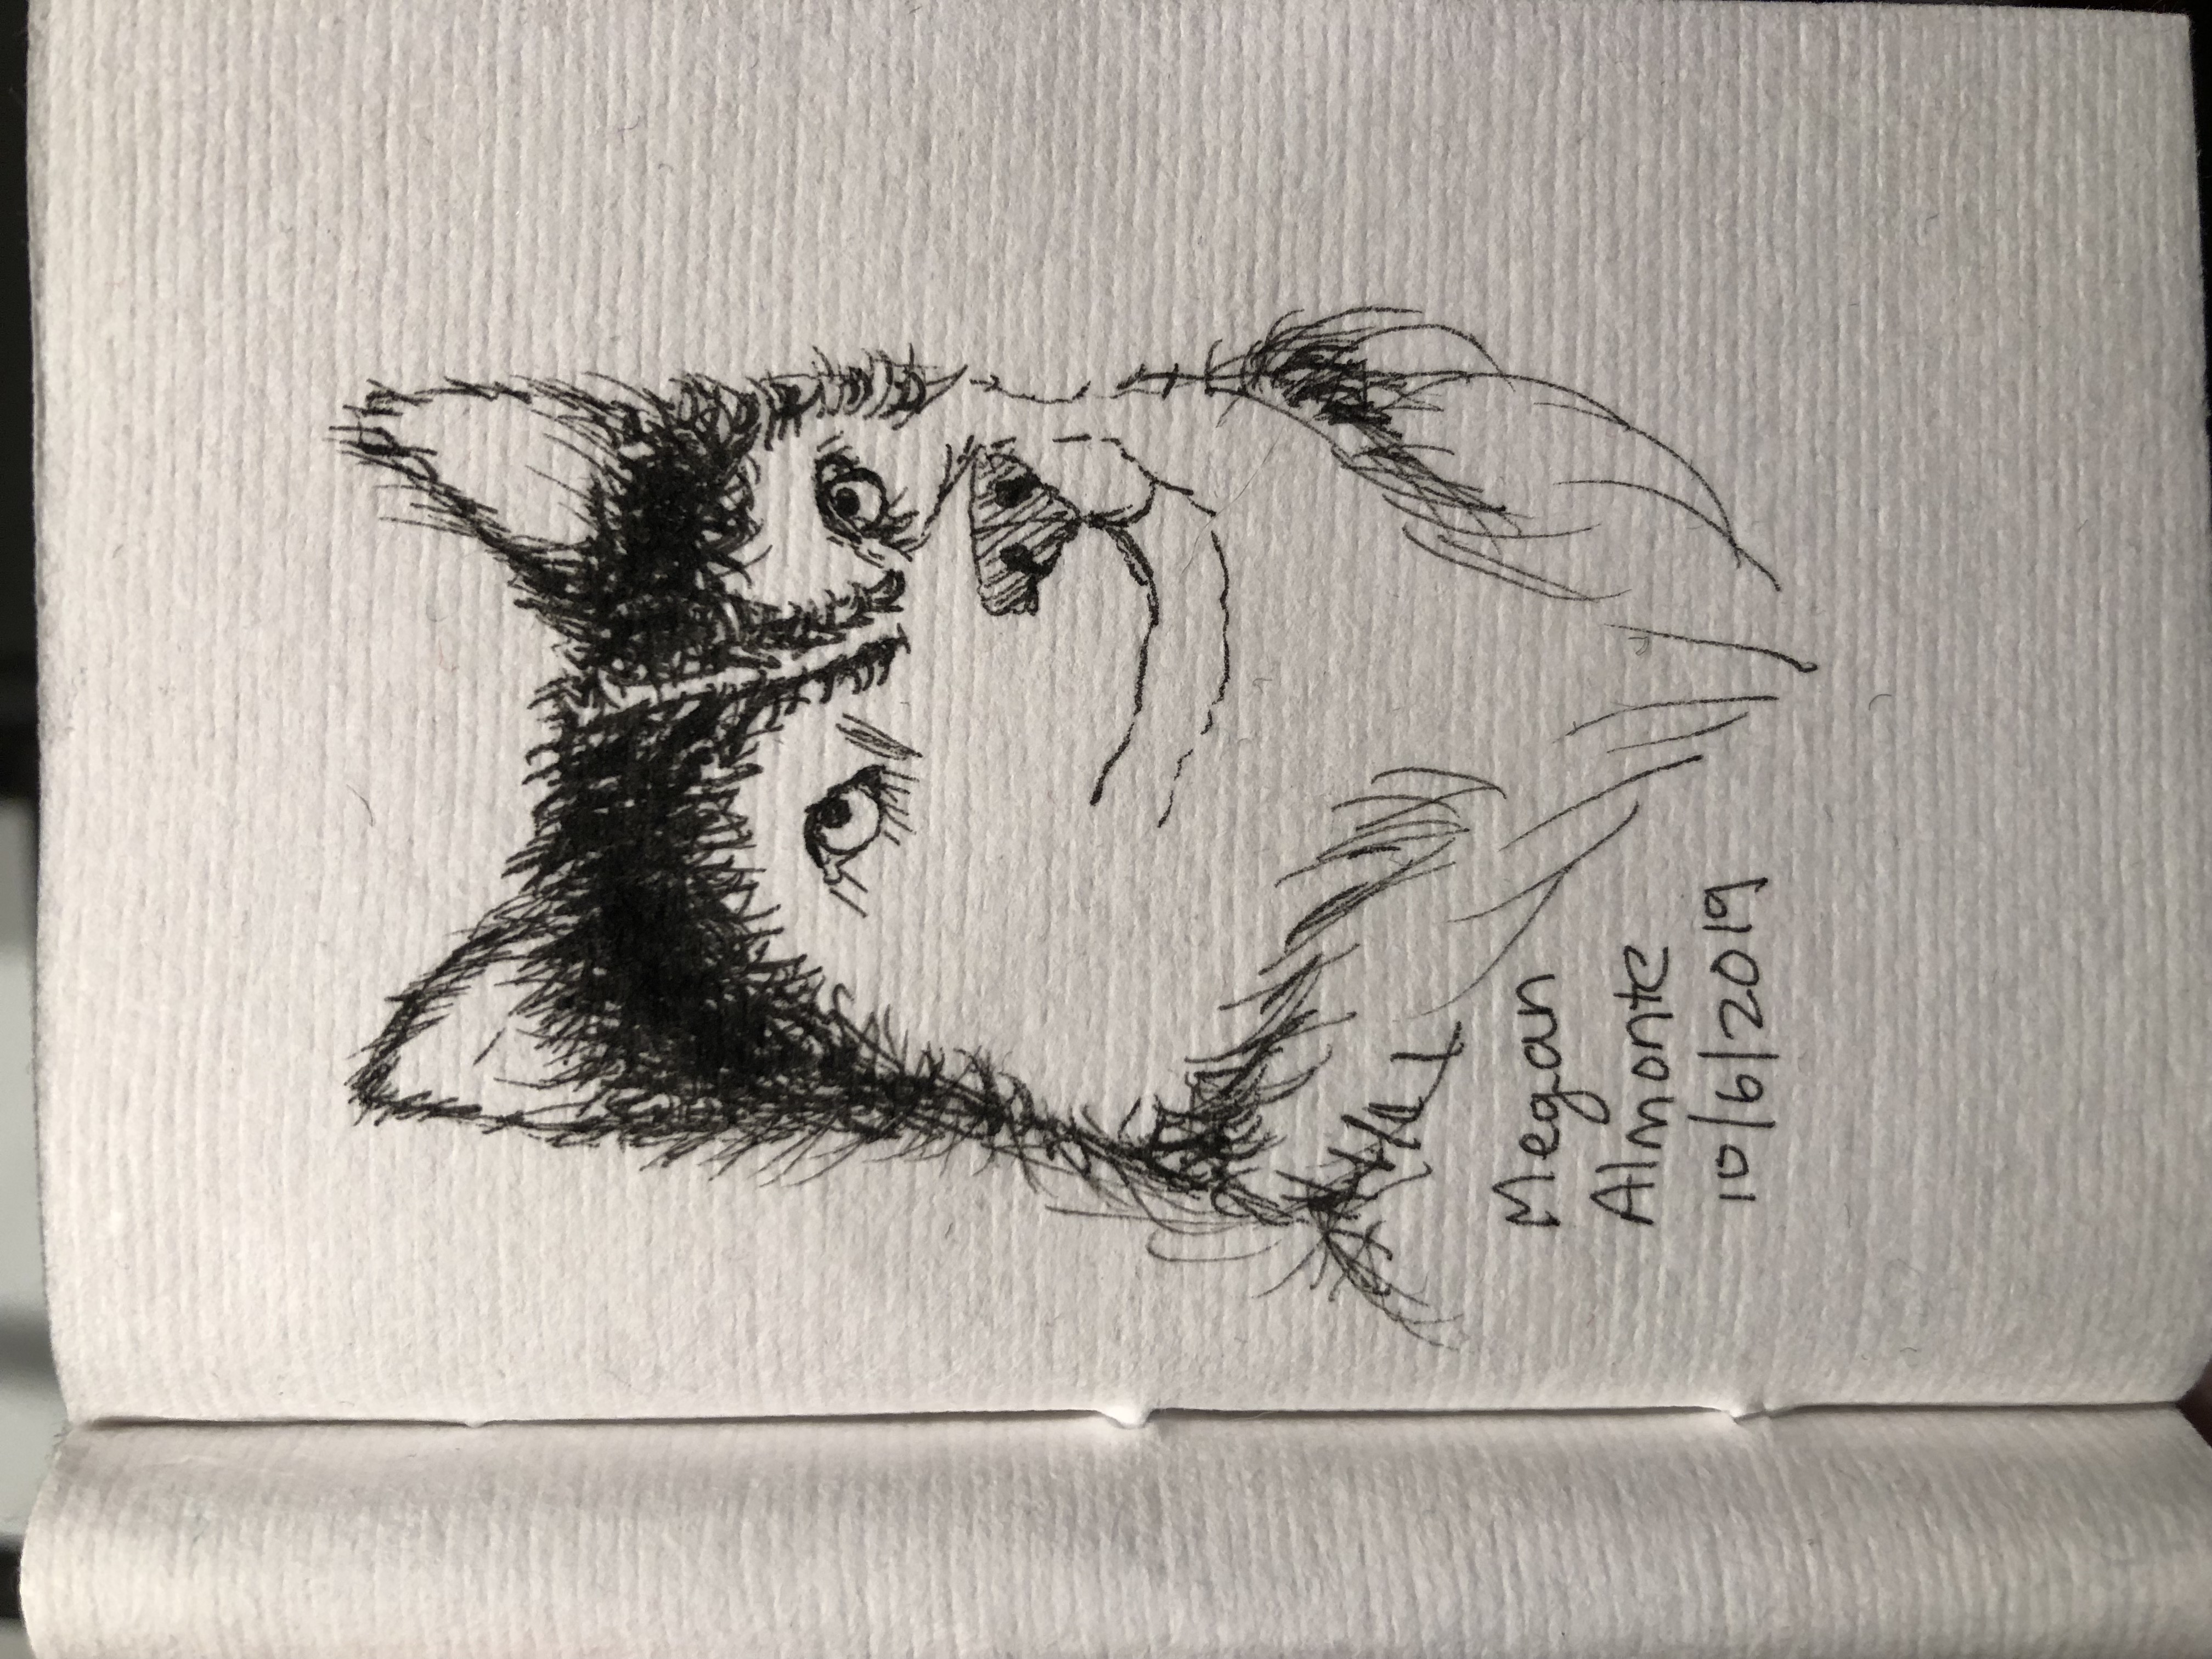 Megan
Almonte
10/6/2019